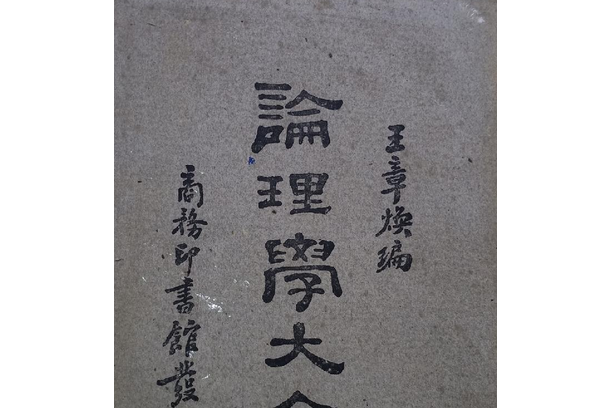 王章煥編
論理學大
商務印書館發